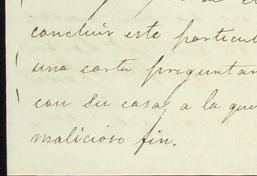 concluir este particul
una carta preguntan
con su casa, a la que
malicioso fin.